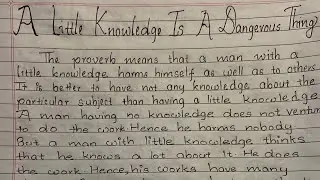 A Little Knowledge Is A Dangerous Thing
The proverb means that a man with a
little knowledge harms himself as well as to others.
It is better to have not any knowledge about the
particular subject than having a little knowledge.
A man having no knowledge does not ventur
to do the work. Hence he harms nobody.
But a man with little knowledge thinks
that he knows a lot about it. He does
the work. Hence, his works have many